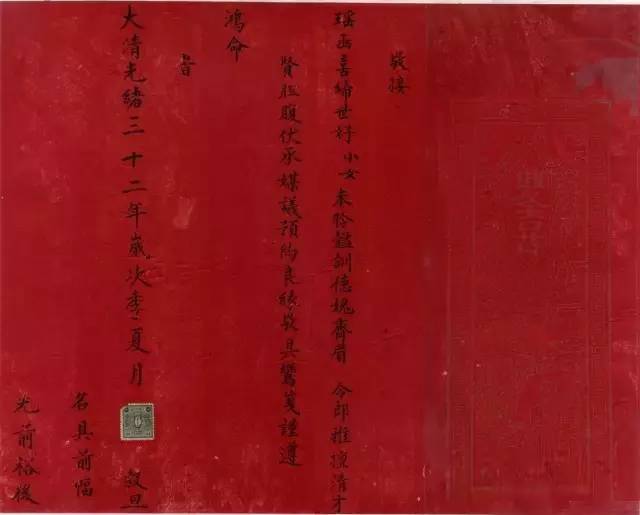 敬接
瑤函喜締世好小女未聆訓德愧齊眉 令郎雅擅清才
賢坦腹伏承媒議預約良緣敬具鸞箋謹遵
鴻命
旹
大清光緒三十二年歲次季夏月 穀旦
名具前幅
光前裕後